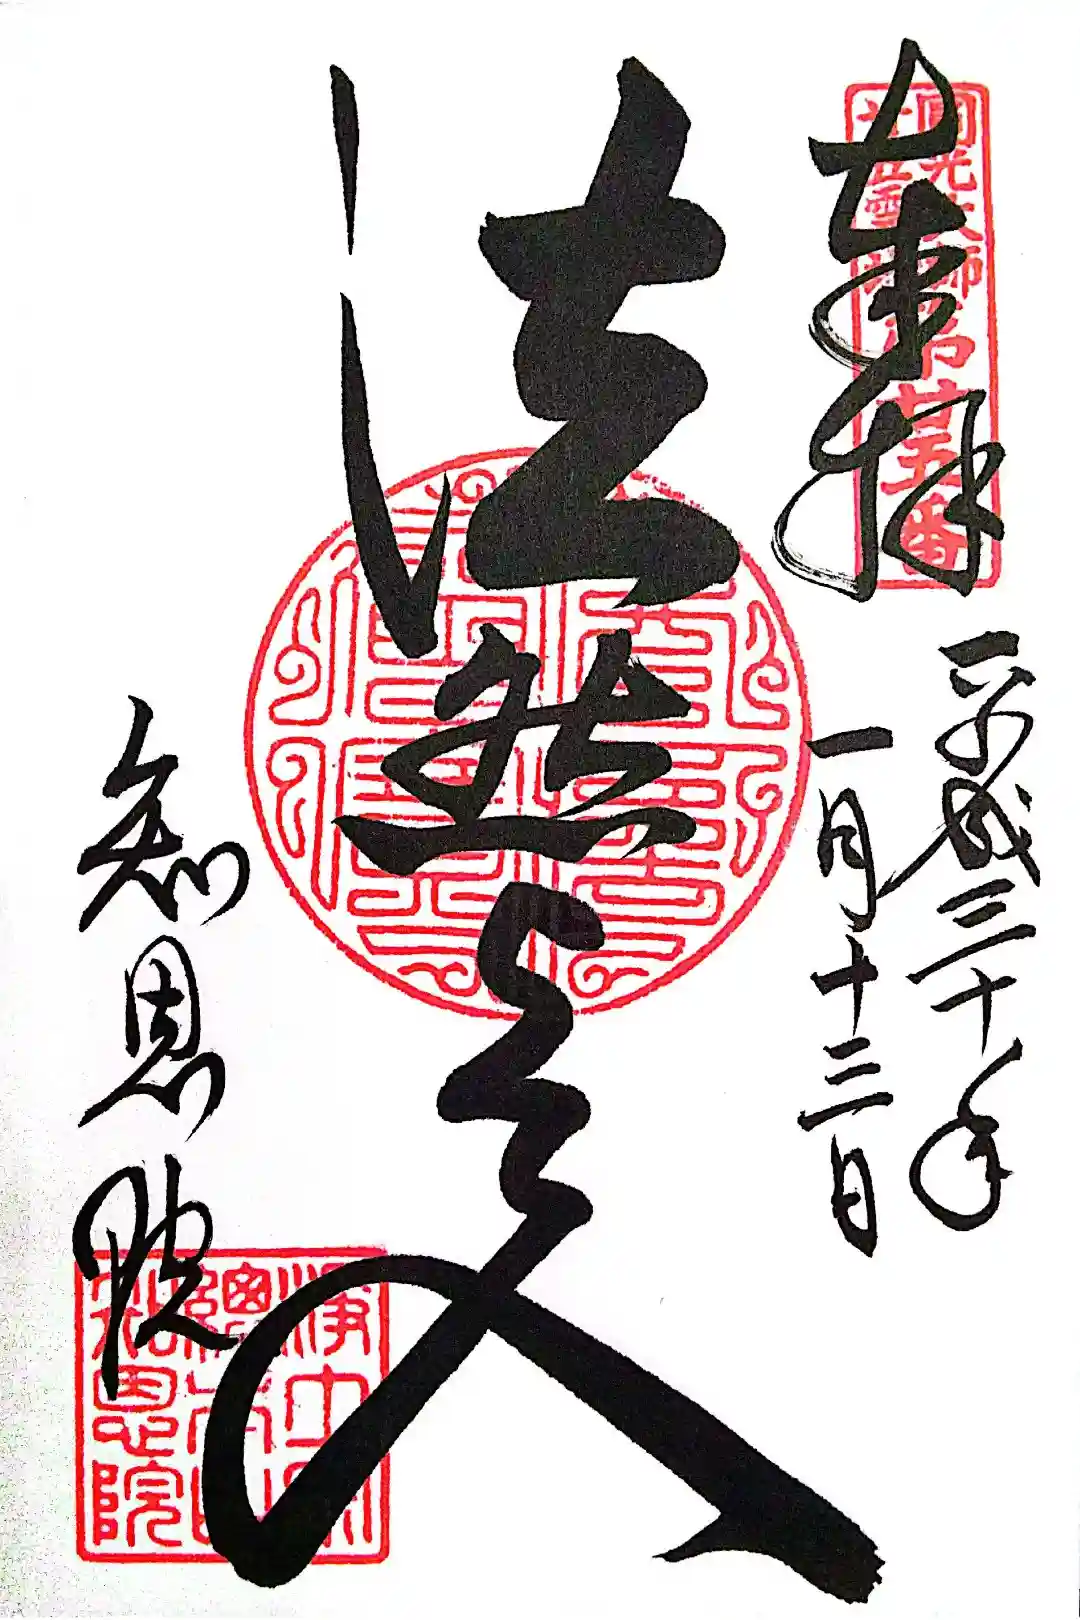 奉拝
圓光大師
廿五霊場
第廿五番
平成三十年
一月十三日
法然上人
知恩院
浄土宗
總本山
知恩院